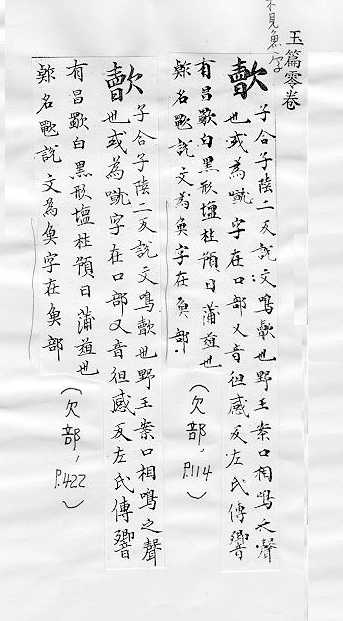 玉篇零卷
不見魚字
歜
子合子陸二反說文鳴歜也野王案口相鳴之聲
也或為噈字在口部又音徂感反左氏傳饗
有昌歜白黑形塩杜預曰蒲葅也
說文為 字在 部
(欠部, P.114)
歜
子合子陸二反說文鳴歜也野王案口相鳴之聲
也或為噈字在口部又音徂感反左氏傳饗
有昌歜白黑形塩杜預曰蒲葅也
說文為 字在 部
(欠部, P.422)